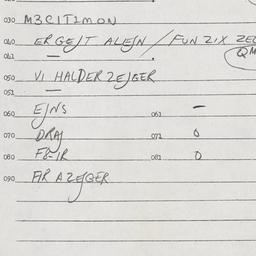 030 M3CITIMON
040 ERGEJT ALEJN / FUN ZIX ZEL
041 — QM
050 VI HALDER ZEJGER
051 —
060 EJNS 061 —
070 DRAJ 071 0
080 FE-IR 081 0
090 FIR AZEJGER